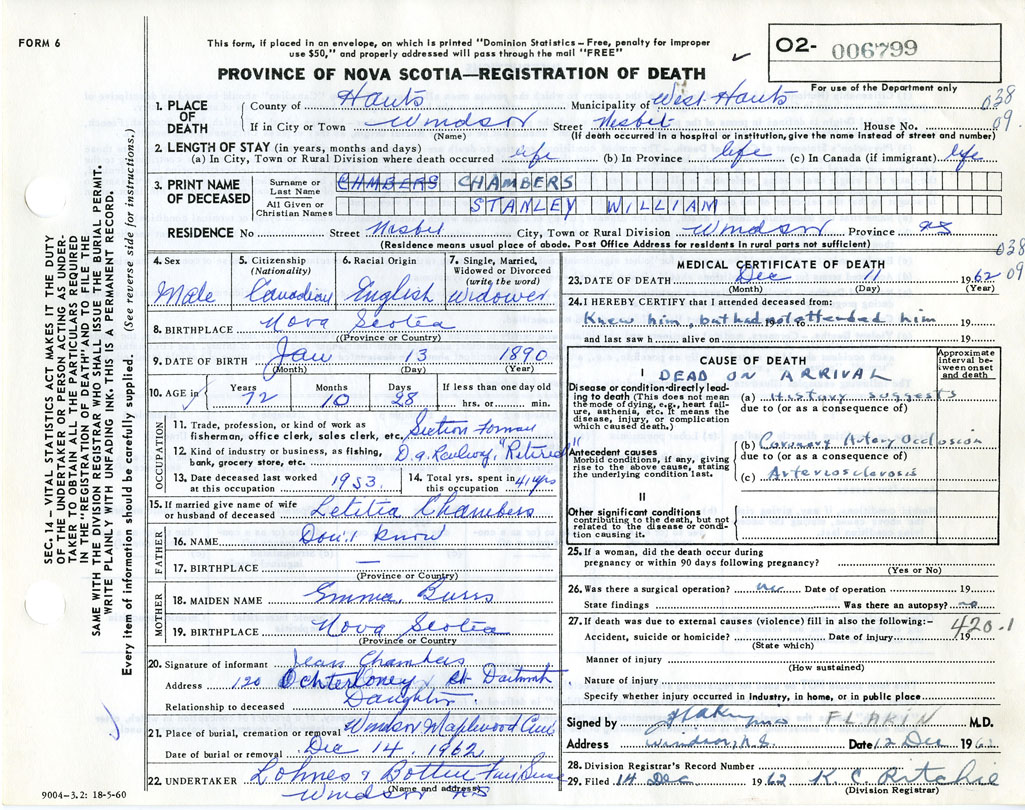 FORM 6
This form, if placed in an envelope, on which is printed "Dominion Statistics – Free, penalty for improper
use $50," and properly addressed will pass through the mail "FREE"
O2- 006799
PROVINCE OF NOVA SCOTIA—REGISTRATION OF DEATH
For use of the Department only
038
09.
1. PLACE OF DEATH
County of Hants Municipality of West Hants
If in City or Town Windsor Street Nesbit House No.
(Name) (If death occurred in a hospital or institution, give the name instead of street and number)
2. LENGTH OF STAY (in years, months and days)
(a) In City, Town or Rural Division where death occurred life (b) In Province life (c) In Canada (if immigrant) life
3. PRINT NAME OF DECEASED
Surname or Last Name CHMBERS CHAMBERS
All Given or Christian Names STANLEY WILLIAM
RESIDENCE No Street Nesbit City, Town or Rural Division Windsor Province NS
(Residence means usual place of abode. Post Office Address for residents in rural parts not sufficient)
038
09
4. Sex Male
5. Citizenship (Nationality) Canadian
6. Racial Origin English
7. Single, Married, Widowed or Divorced (write the word) Widower
8. BIRTHPLACE Nova Scotia
(Province or Country)
9. DATE OF BIRTH Jan 13 1890
(Month) (Day) (Year)
10. AGE in Years 72 Months 10 Days 28 If less than one day old
hrs. or min.
OCCUPATION
11. Trade, profession, or kind of work as
fisherman, office clerk, sales clerk, etc. Section Forman
12. Kind of industry or business, as fishing,
bank, grocery store, etc. D.a. Railway, "Retired"
13. Date deceased last worked
at this occupation 1953.
14. Total yrs. spent in
this occupation 41 yrs
15. If married give name of wife
or husband of deceased Letitia Chambers
FATHER
16. NAME Don't know
17. BIRTHPLACE —
(Province or Country)
MOTHER
18. MAIDEN NAME Emma
19. BIRTHPLACE Nova Scotia
(Province or Country)
20. Signature of informant Jean Chambers
Address 120 Ochterloney St Dartmouth
Relationship to deceased Daughter
21. Place of burial, cremation or removal Windsor Maplewood Cem
Date of burial or removal Dec 14. 1962
22. UNDERTAKER Lohnes &
(Name and address)
Windsor NS
9004-3.2: 18-5-60
MEDICAL CERTIFICATE OF DEATH
23. DATE OF DEATH Dec 11 1962
(Month) (Day) (Year)
24. I HEREBY CERTIFY that I attended deceased from:
Knew him, but had not attended him 19
and last saw h alive on 19
CAUSE OF DEATH
Approximate interval between onset and death
I DEAD ON ARRIVAL
Disease or condition directly leading to death (This does not mean the mode of dying, e.g., heart failure, asthenia, etc. It means the disease, injury, or complication which caused death.)
(a) History suggests
due to (or as a consequence of)
Antecedent causes
Morbid conditions, if any, giving rise to the above cause, stating the underlying condition last.
(b) Coronary Artery Occlusion
due to (or as a consequence of)
(c) Arteriosclerosis
II
Other significant conditions
contributing to the death, but not related to the disease or condition causing it.
25. If a woman, did the death occur during
pregnancy or within 90 days following pregnancy?
(Yes or No)
26. Was there a surgical operation? no Date of operation 19
State findings Was there an autopsy? no
27. If death was due to external causes (violence) fill in also the following:-
420-1
Accident, suicide or homicide? Date of injury 19
(State which)
Manner of injury
(How sustained)
Nature of injury
Specify whether injury occurred in industry, in home, or in public place
Signed by F LAKIN M.D.
Address Windsor, N.S. Date 12 Dec 1962
28. Division Registrar's Record Number
29. Filed 14 Dec 1962 K C Ritchie
(Division Registrar)
SEC. 14 – VITAL STATISTICS ACT MAKES IT THE DUTY
OF THE UNDERTAKER OR PERSON ACTING AS UNDER-
TAKER TO OBTAIN ALL THE PARTICULARS REQUIRED
IN THE "REGISTRATION OF DEATH" AND TO FILE THE
SAME WITH THE DIVISION REGISTRAR WHO SHALL ISSUE THE BURIAL PERMIT.
WRITE PLAINLY WITH UNFADING INK–THIS IS A PERMANENT RECORD.
Every item of information should be carefully supplied. (See reverse side for instructions.)